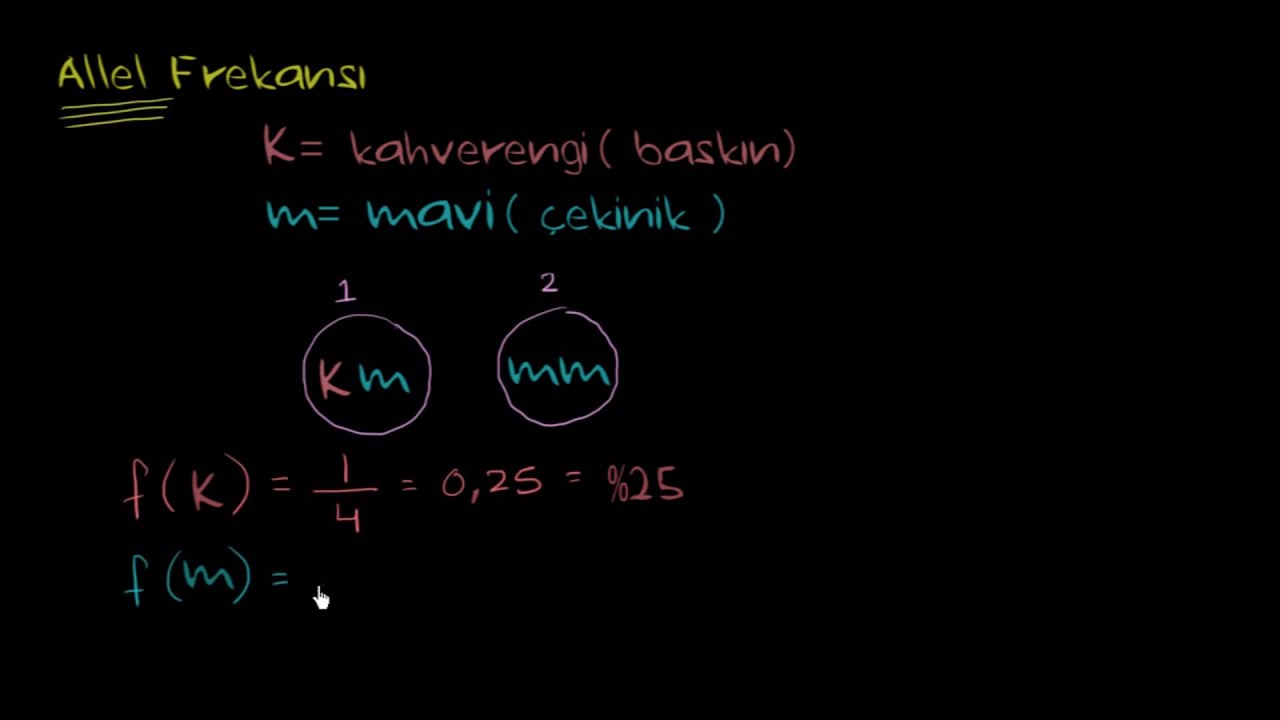 Allel Frekansı
K= kahverengi ( baskın)
m= mavi ( çekinik )
1 2
Km mm
f(K) = 1/4 = 0,25 = %25
f(m) =